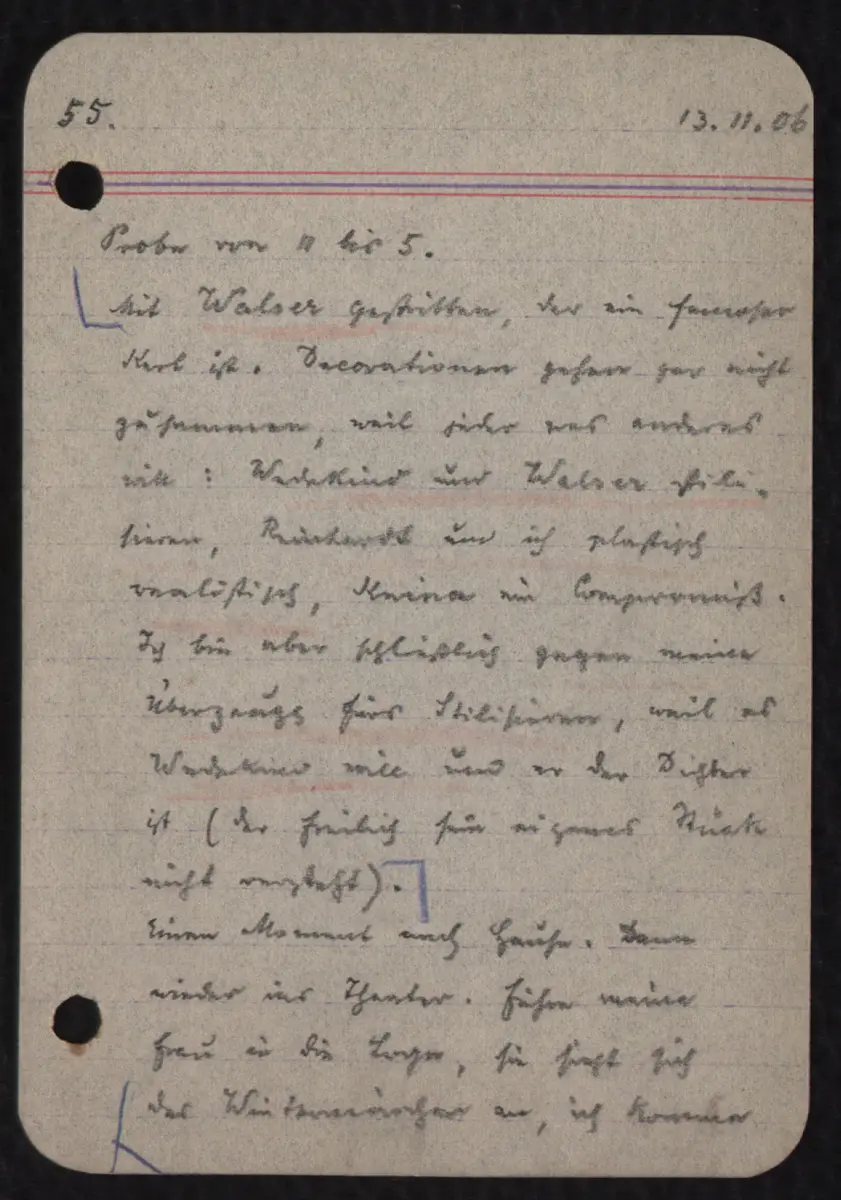 55.
13.11.06
Probe von 11 bis 5.
Mit Walser gestritten, der ein famoser
Kerl ist. Decorationen gehen gar nicht
zusammen, weil jeder was anderes
will: Wedekind und Walser stili-
sieren, Reinhardt und ich plastisch
realistisch, Keiner ein Compromiß.
Ich bin aber schließlich gegen meine
Überzeugg fürs Stilisieren, weil es
Wedekind will und er der Dichter
ist (der freilich sein eigenes Stück
nicht versteht).
Einen Moment nach Hause. Dann
wieder ins Theater. Führe meine
Frau in die Loge, sie sieht sich
das Wintermärchen an, ich komme